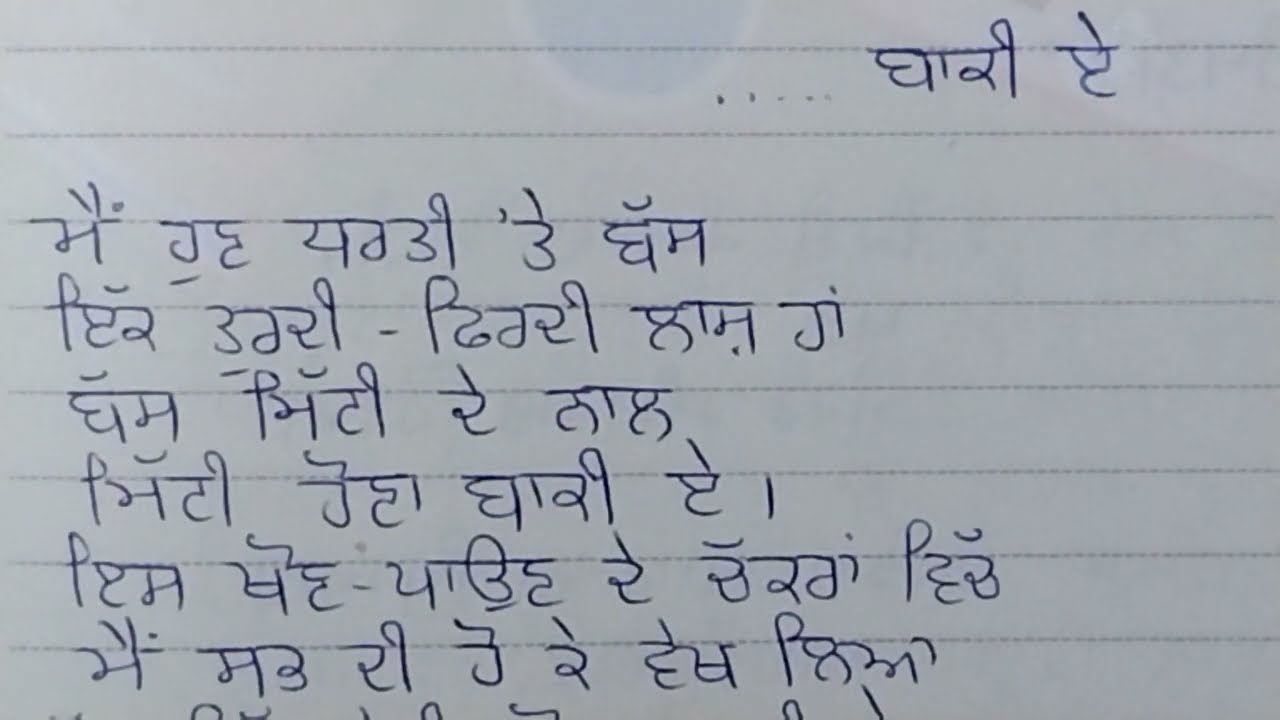 ..... ਬਾਕੀ ਏ
ਮੈਂ ਹੁਣ ਧਰਤੀ 'ਤੇ ਬੱਸ
ਇੱਕ ਤੁਰਦੀ - ਫਿਰਦੀ ਲਾਸ਼ ਹਾਂ
ਬੱਸ ਮਿੱਟੀ ਦੇ ਨਾਲ
ਮਿੱਟੀ ਹੋਣਾ ਬਾਕੀ ਏ ।
ਇਸ ਖੋਣ-ਪਾਉਣ ਦੇ ਚੱਕਰਾਂ ਵਿੱਚ
ਮੈਂ ਸਭ ਦੀ ਹੋ ਕੇ ਵੇਖ ਲਿਆ